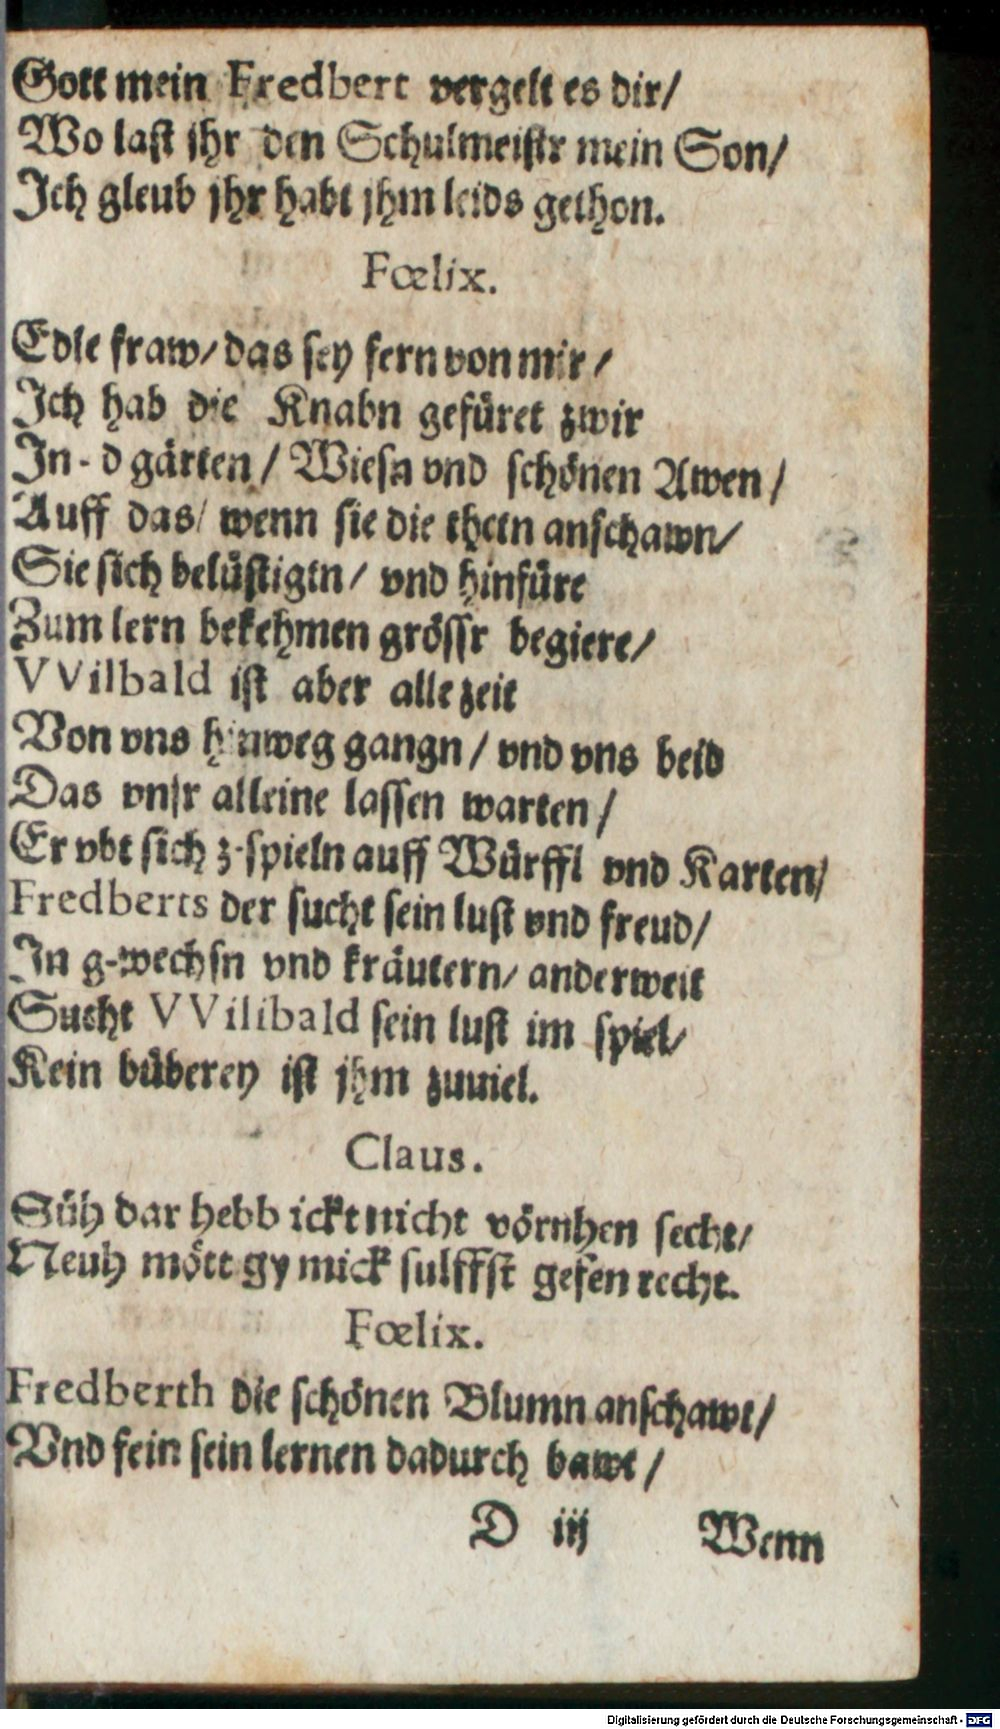 Gott mein Fredbert vergelt es dir/
Wo last jhr den Schulmeistr mein Son/
Ich gleub jhr habt jhm leids gethon.
Fœlix.
Edle fraw/ das sey fern von mir/
Ich hab die Knabn gefüret zwir
In-d gärten/ Wiesn vnd schönen Awen/
Auff das/ wenn sie die theln anschawn/
Sie sich belüstigtn/ vnd hinfüre
Zum lern bekehmen grössr begiere/
VVilbald ist aber alle zeit
Von vns hinweg gangn/ vnd vns beid
Das vnsr alleine lassen warten/
Er vbt sich z-spieln auff Würffl vnd Karten/
Fredberts der sucht sein lust vnd freud/
In g-wechsn vnd kräutern/ anderweit
Sucht VVilibald sein lust im spiel/
Kein büberey ist jhm zuuiel.
Claus.
Süh dar hebb ickt nicht vörnhen secht/
Neuh mött gy mick sulffst gefen recht.
Fœlix.
Fredberth die schönen Blumn anschawt/
Vnd fein sein lernen dadurch bawt/
D iij Wenn
Digitalisierung gefördert durch die Deutsche Forschungsgemeinschaft - DFG